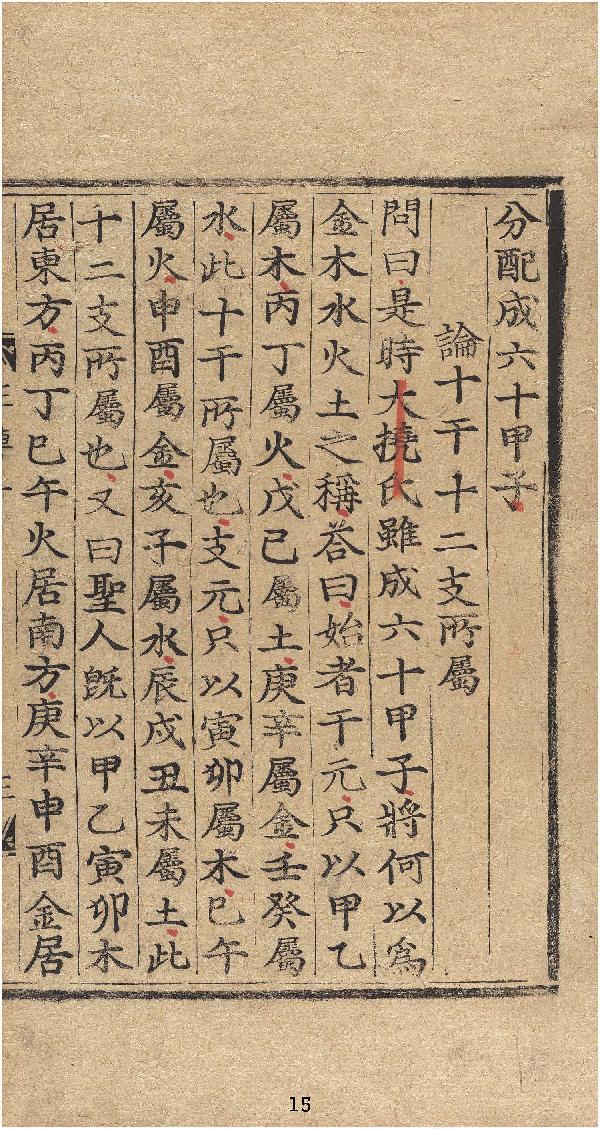 分配成六十甲子
論十干十二支所屬
問曰是時大撓氏雖成六十甲子將何以爲
金木水火土之稱荅曰始者干元只以甲乙
屬木丙丁屬火戊己屬土庚辛屬金壬癸屬
水此十干所屬也支元只以寅卯屬木巳午
屬火申酉屬金亥子屬水辰戌丑未屬土此
十二支所屬也又曰聖人旣以甲乙寅卯木
居東方丙丁巳午火居南方庚辛申酉金居
15